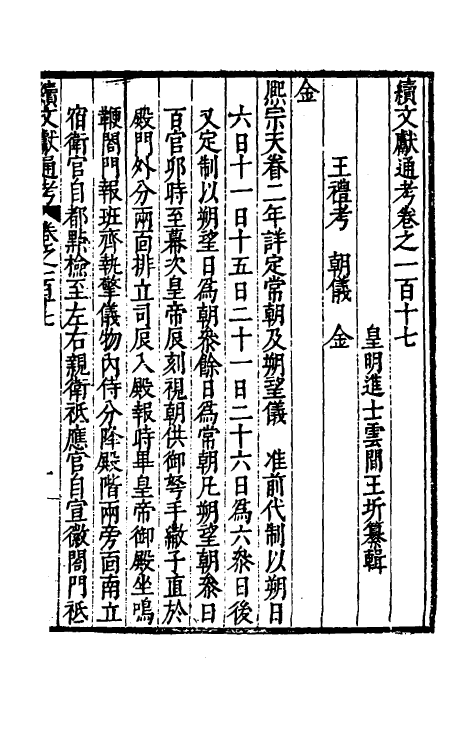 續文獻通考卷之一百十七
皇明進士雲間王圻纂輯
王禮考　朝儀　金
金
熈宗天眷二年詳定常朝及朔望儀　准前代制以朔日
六日十一日十五日二十一日二十六日爲六叅日後
又定制以朔望日爲朝叅餘日爲常朝凡朔望朝叅日
百官卯時至幕次皇帝辰刻視朝供御弩手繖子直於
殿門外分兩面排立司辰入殿報時畢皇帝御殿坐鳴
鞭閤門報班齊執擎儀物內侍分降殿階兩旁面南立
宿衛官自都㸃檢至左右親衛祗應官自宣徽閤門祗
續文獻通考　卷之一百十七　一